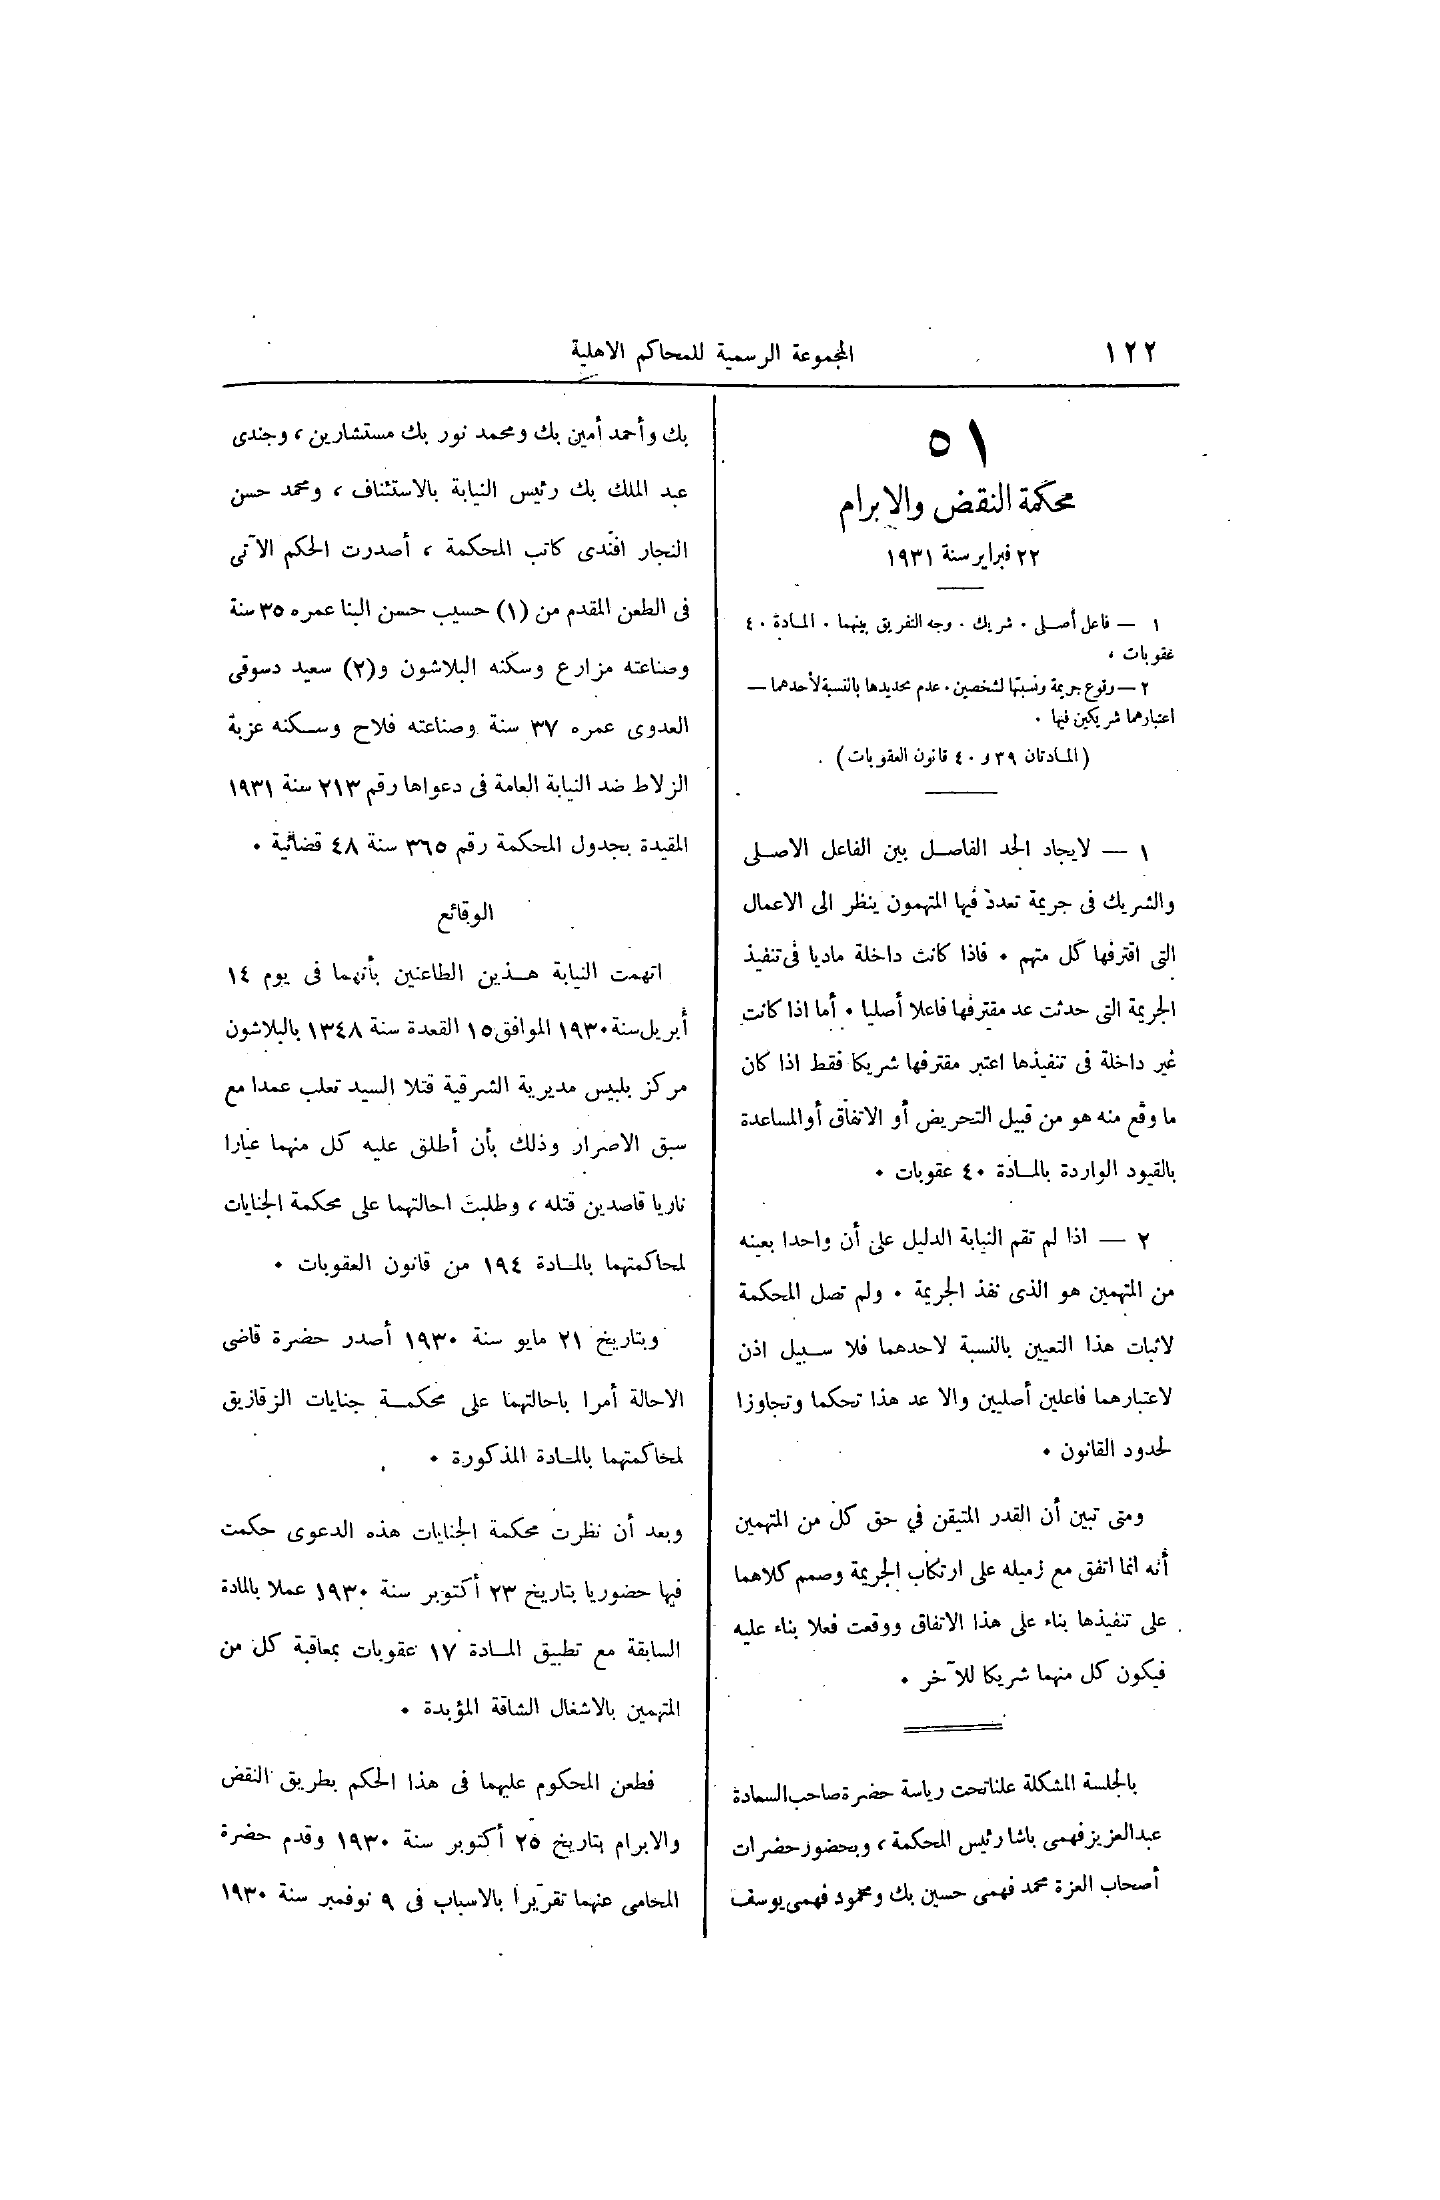 ١٢٢
المجموعة الرسمية للمحاكم الاهلية
٥١
محكمة النقض والابرام
٢٢ فبراير سنة ١٩٣١
١ — فاعل أصلى · شريك · وجه التفريق بينهما · المادة ٤٠
عقوبات ،
٢ — وقوع جريمة ونسبتها لشخصين · عدم تحديدها بالنسبة لأحدهما —
اعتبارهما شريكين فيها ·
( المادتان ٣٩ و ٤٠ قانون العقوبات ) .
١ — لايجاد الحد الفاصل بين الفاعل الاصلى
والشريك فى جريمة تعدد فيها المتهمون ينظر الى الاعمال
التى اقترفها كل متهم ٠ فاذا كانت داخلة ماديا فى تنفيذ
الجريمة التى حدثت عد مقترفها فاعلا أصليا ٠ أما اذا كانت
غير داخلة فى تنفيذها اعتبر مقترفها شريكا فقط اذا كان
ما وقع منه هو من قبيل التحريض أو الاتفاق أو المساعدة
بالقيود الواردة بالمادة ٤٠ عقوبات ٠
٢ — اذا لم تقم النيابة الدليل على أن واحدا بعينه
من المتهمين هو الذى نفذ الجريمة ٠ ولم تصل المحكمة
لاثبات هذا التعيين بالنسبة لاحدهما فلا سبيل اذن
لاعتبارهما فاعلين أصليين والا عد هذا تحكما وتجاوزا
لحدود القانون ٠
ومتى تبين أن القدر المتيقن في حق كل من المتهمين
أنه انما اتفق مع زميله على ارتكاب الجريمة وصمم كلاهما
على تنفيذها بناء على هذا الاتفاق ووقعت فعلا بناء عليه
فيكون كل منهما شريكا للآخر ٠
بالجلسة المشكلة علنا تحت رياسة حضرة صاحب السعادة
عبد العزيز فهمى باشا رئيس المحكمة ، وبحضور حضرات
أصحاب العزة محمد فهمى حسين بك ومحمود فهمى يوسف
بك وأحمد أمين بك ومحمد نور بك مستشارين ، وجندى
عبد الملك بك رئيس النيابة بالاستئناف ، ومحمد حسن
النجار افندى كاتب المحكمة ، أصدرت الحكم الآتى
فى الطعن المقدم من (١) حسيب حسن البنا عمره ٣٥ سنة
وصناعته مزارع وسكنه البلاشون و(٢) سعيد دسوقى
العدوى عمره ٣٧ سنة وصناعته فلاح وسكنه عزبة
الزلاط ضد النيابة العامة فى دعواها رقم ٢١٣ سنة ١٩٣١
المقيدة بجدول المحكمة رقم ٣٦٥ سنة ٤٨ قضائية ٠
الوقائع
اتهمت النيابة هذين الطاعنين بأنهما فى يوم ١٤
أبريل سنة ١٩٣٠ الموافق ١٥ القعدة سنة ١٣٤٨ بالبلاشون
مركز بلبيس مديرية الشرقية قتلا السيد تعلب عمدا مع
سبق الاصرار وذلك بأن أطلق عليه كل منهما عيارا
ناريا قاصدين قتله ، وطلبت احالتهما على محكمة الجنايات
لمحاكمتهما بالمادة ١٩٤ من قانون العقوبات ٠
وبتاريخ ٢١ مايو سنة ١٩٣٠ أصدر حضرة قاضى
الاحالة أمرا باحالتهما على محكمة جنايات الزقازيق
لمحاكمتهما بالمادة المذكورة ٠
وبعد أن نظرت محكمة الجنايات هذه الدعوى حكمت
فيها حضوريا بتاريخ ٢٣ أكتوبر سنة ١٩٣٠ عملا بالمادة
السابقة مع تطبيق المادة ١٧ عقوبات بمعاقبة كل من
المتهمين بالاشغال الشاقة المؤبدة ٠
فطعن المحكوم عليهما فى هذا الحكم بطريق النقض
والابرام بتاريخ ٢٥ أكتوبر سنة ١٩٣٠ وقدم حضرة
المحامى عنهما تقريرا بالاسباب فى ٩ نوفمبر سنة ١٩٣٠